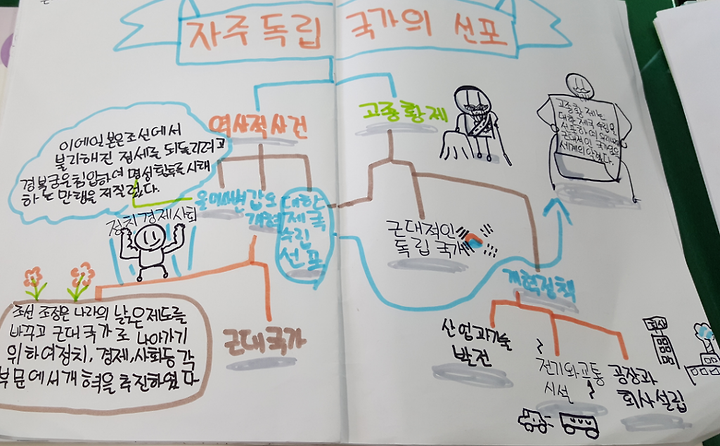 자주독립 국가의 선포
역사적사건
고종황제
이에일본은조선에서
불리해진 정세를 되돌리려고
경복궁을침입하여 명성황후를 시해
하는 만행을 저질렀다.
을미사변
갑오
개혁
대한
제국
수립
선포
정치경제사회
고종황제는
대한제국 수립을
선포하여
근대적인
독립국가
개혁정책
조선 조정은 나라의 낡은제도를
바꾸고 근대국가로 나아가기
위하여정치, 경제,사회등 각
부문에서개혁을추진하였다
근대국가
산업과기술
발전
전기와교통
시설
공장과
회사설립